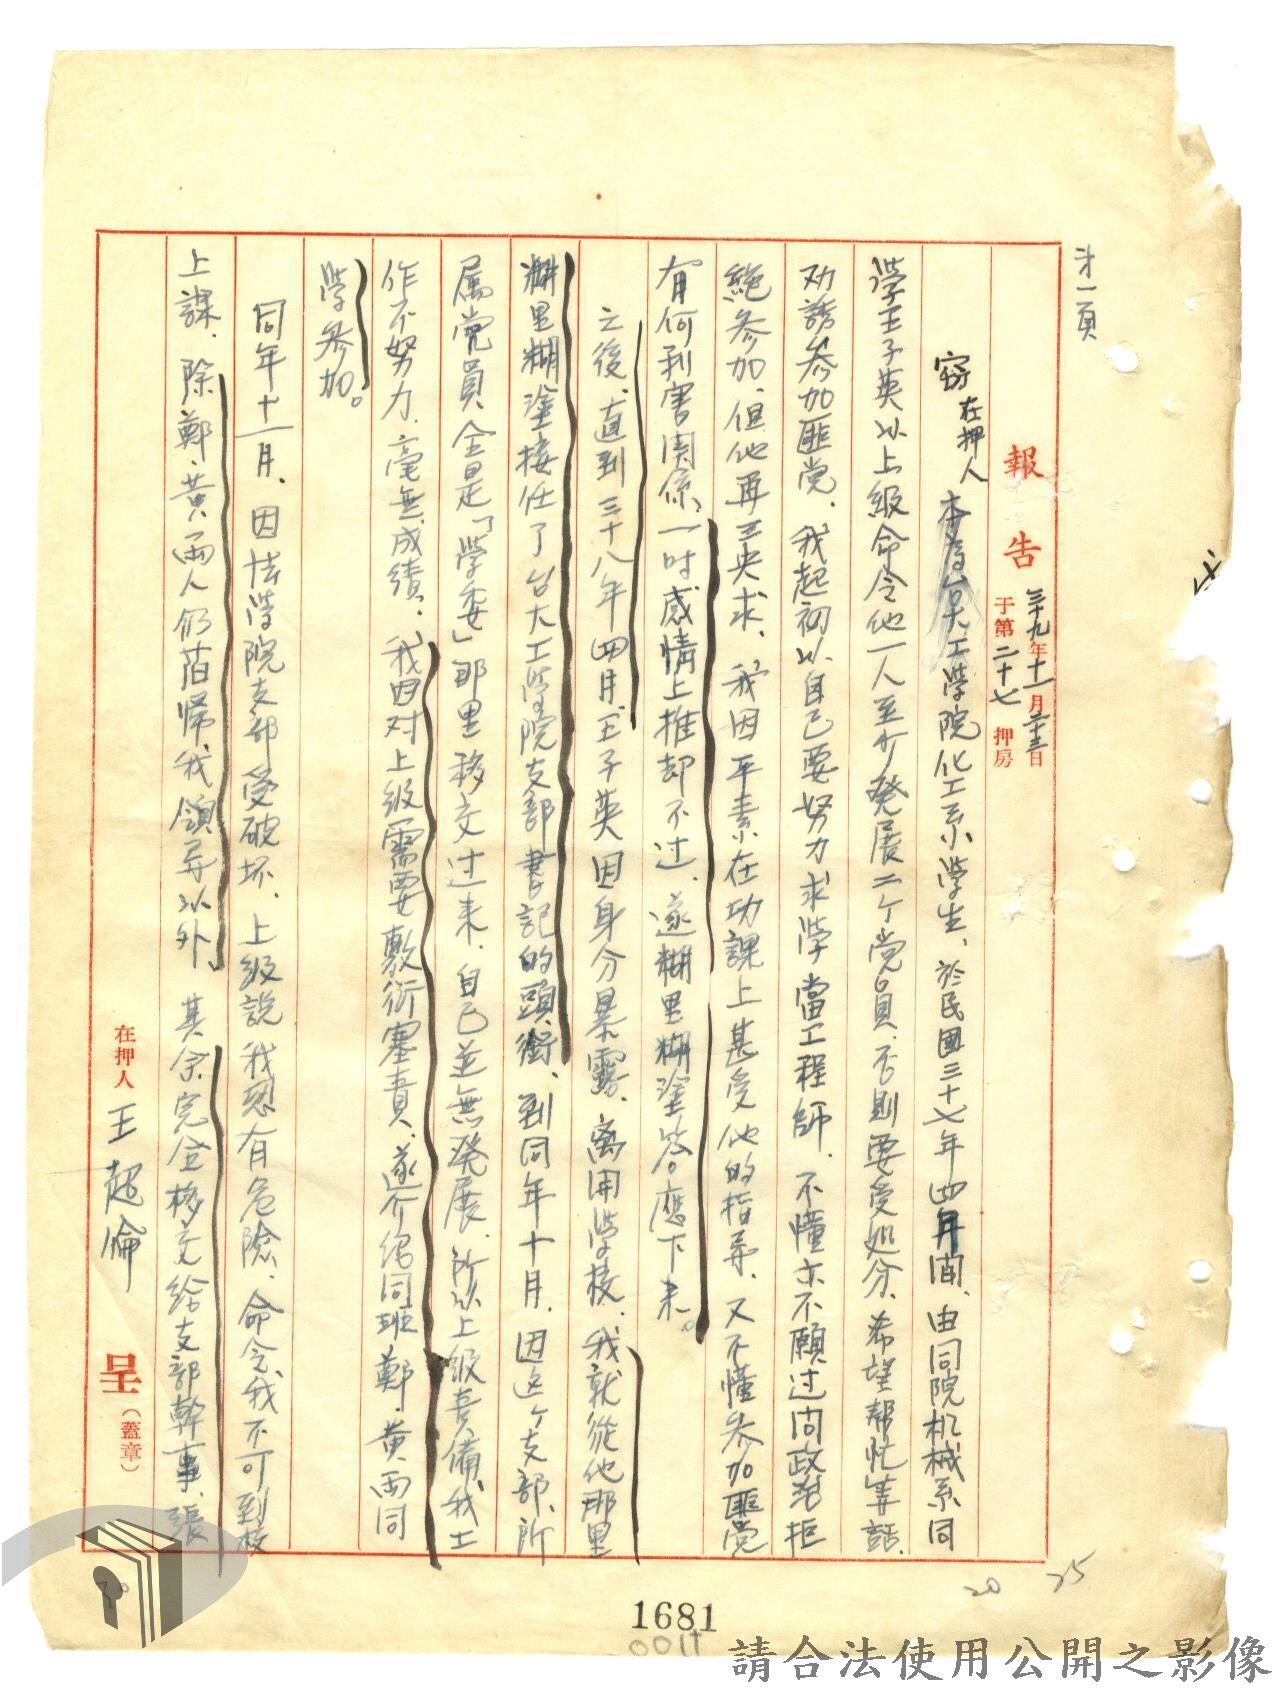 才一頁
報告 三十九年十一月二十三日
于第二十七押房
竊在押人本為台大工學院化工系學生、於民國三十七年四月間、由同院机械系同
學王子英以上級命令他一人至少発展二个党員、否則要受処分、希望帮忙等話、
劝誘参加匪党、我起初以自己要努力求學當工程師、不懂亦不願过问政治拒
絕参加、但他再三央求、我因平素在功課上甚受他的指导、又不懂参加匪党
有何利害関係、一时感情上推却不过、遂糊里糊塗答應下来。
之後、直到三十八年四月、王子英因身分暴露、离開學校、我就從他那里
糊里糊塗接任了台大工學院支部書記的頭銜、到同年十月、因这个支部、所
属党員全是「學委」那里移交过来、自己並無発展、所以上級責備我工
作不努力、毫無成績、我因对上級需要敷衍塞責、遂介绍同班鄭、黄両同
學参加。
同年十一月、因法學院支部受破坏、上級説我恐有危險、命令我不可到校
上課、除鄭、黄両人仍旧归我領导以外、其余完全移交給支部幹事、張
在押人 王超倫 呈（蓋章）
20 25
1681
0011
請合法使用公開之影像